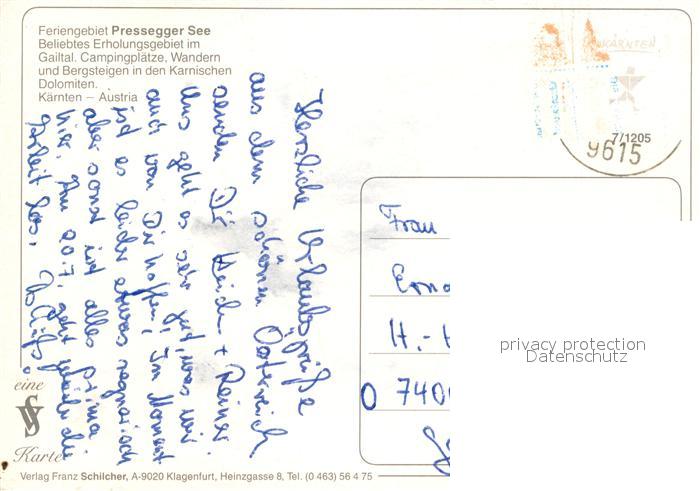 Feriengebiet Pressegger See
Beliebtes Erholungsgebiet im
Gailtal. Campingplätze, Wandern
und Bergsteigen in den Karnischen
Dolomiten.
Kärnten – Austria
Herzliche Urlaubsgrüße
aus dem schönen Österreich
senden Dir Heidi + Reiner.
Uns geht es sehr gut, was wir
auch von Dir hoffen, Im Moment
ist es leider etwas regnerisch
aber sonst ist alles prima
hier. Am 20.7. geht wieder die
Arbeit los.
KÄRNTEN
7/1205
9615
Frau
H.-
O 740
privacy protection
Datenschutz
eine
Karte
Verlag Franz Schilcher, A-9020 Klagenfurt, Heinzgasse 8, Tel. (0 463) 56 4 75